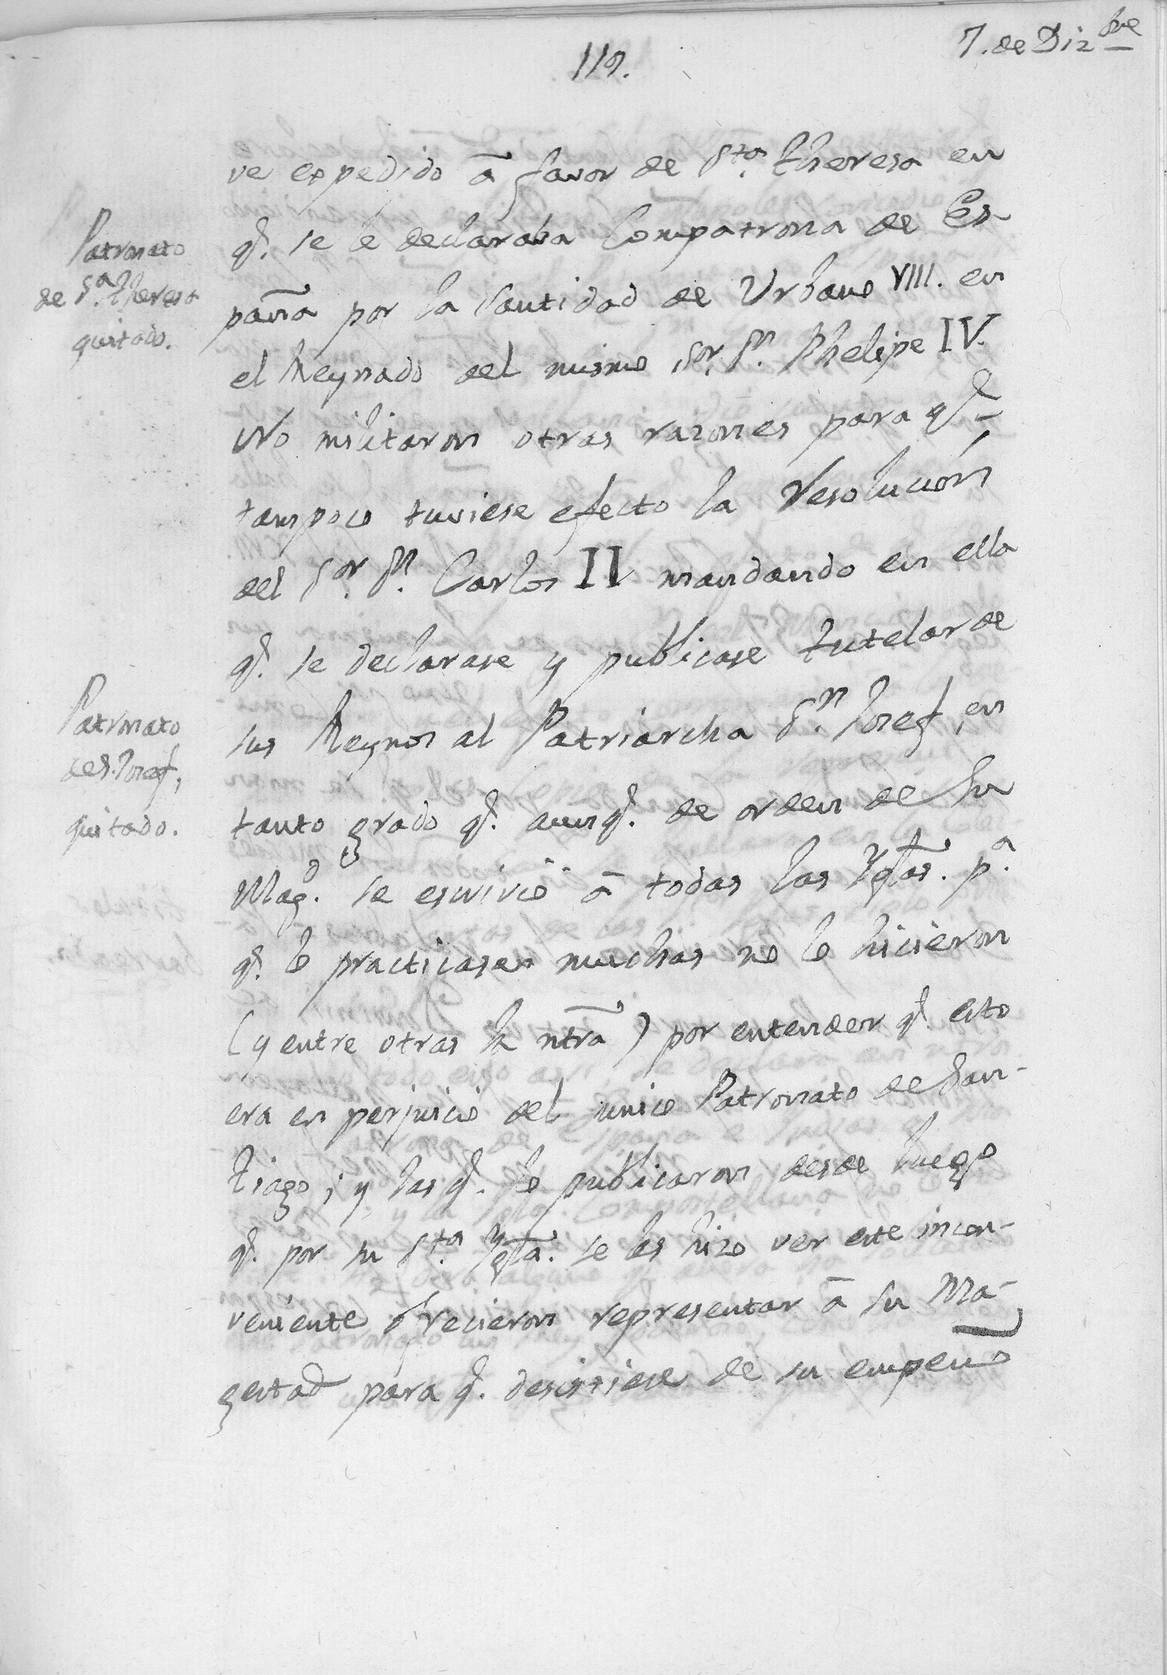 7. de Diz.bre
119.
ve expedido â favor de S.ta theresa en
q.e se le declaraba Compatrona de Es-
Patronato
de S.ta theresa
quitado.
paña por la Santidad de Urbano VIII. en
el Reynado del mismo S.or D.n Phelipe IV.
No militaron otras razones para q.e
tampoco tuviese efecto la resolución
del S.or D.n Carlos II mandando en ella
q.e se declarase y publicase tutelar de
sus Reynos al Patriarcha S.n Josef, en
Patronato
de S. Josef,
quitado.
tanto grado q.e aunq.e de orden de Su
Mag.d se escrivió â todas las Yglas. p.a
q.e lo practicasen muchas no lo hicieron
(y entre otras la ntrã) por entender q.e esto
era en perjuicio del unico Patronato de San-
tiago; y las q.e lo publicaron desde luego
q.e por su S.ta Ygla. se les hizo ver este incon-
veniente ofrecieron representar â Su Ma-
gestad para q.e desistiese de su empeño